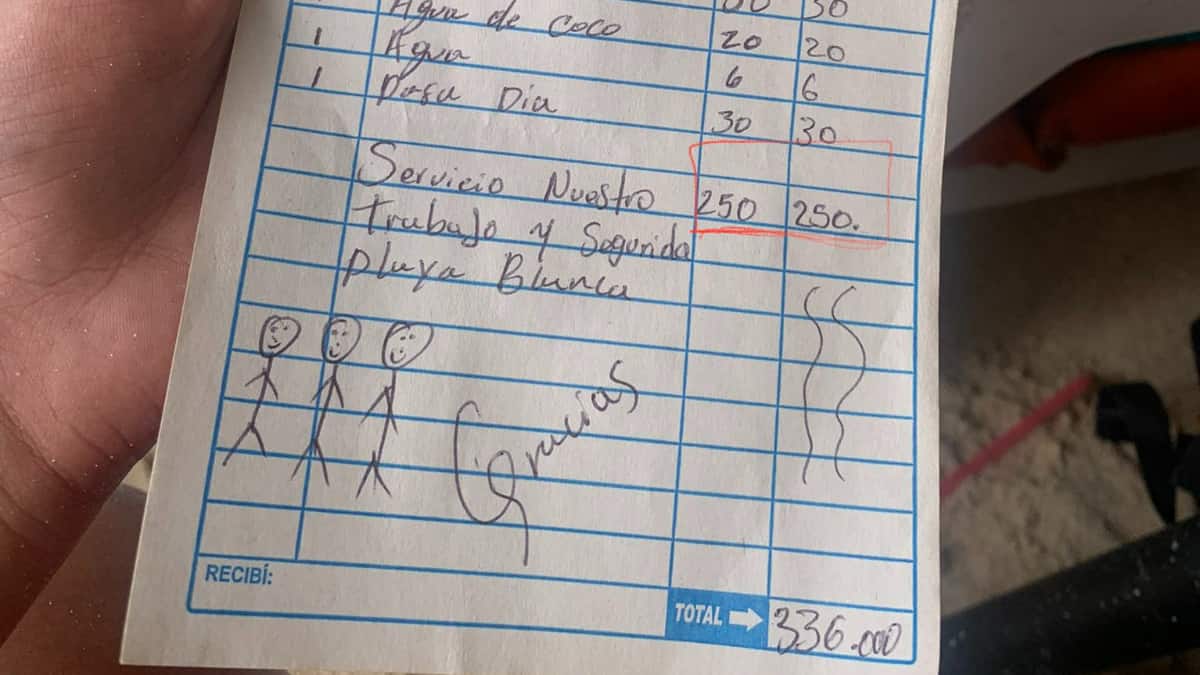 30
Agua de Coco 20 20
1 Agua 6 6
1 Pasa Dia 30 30
Servicio Nuestro 250 250.
trabajo y Segurida
Playa Blanca
Gracias
RECIBÍ:
TOTAL 336.000